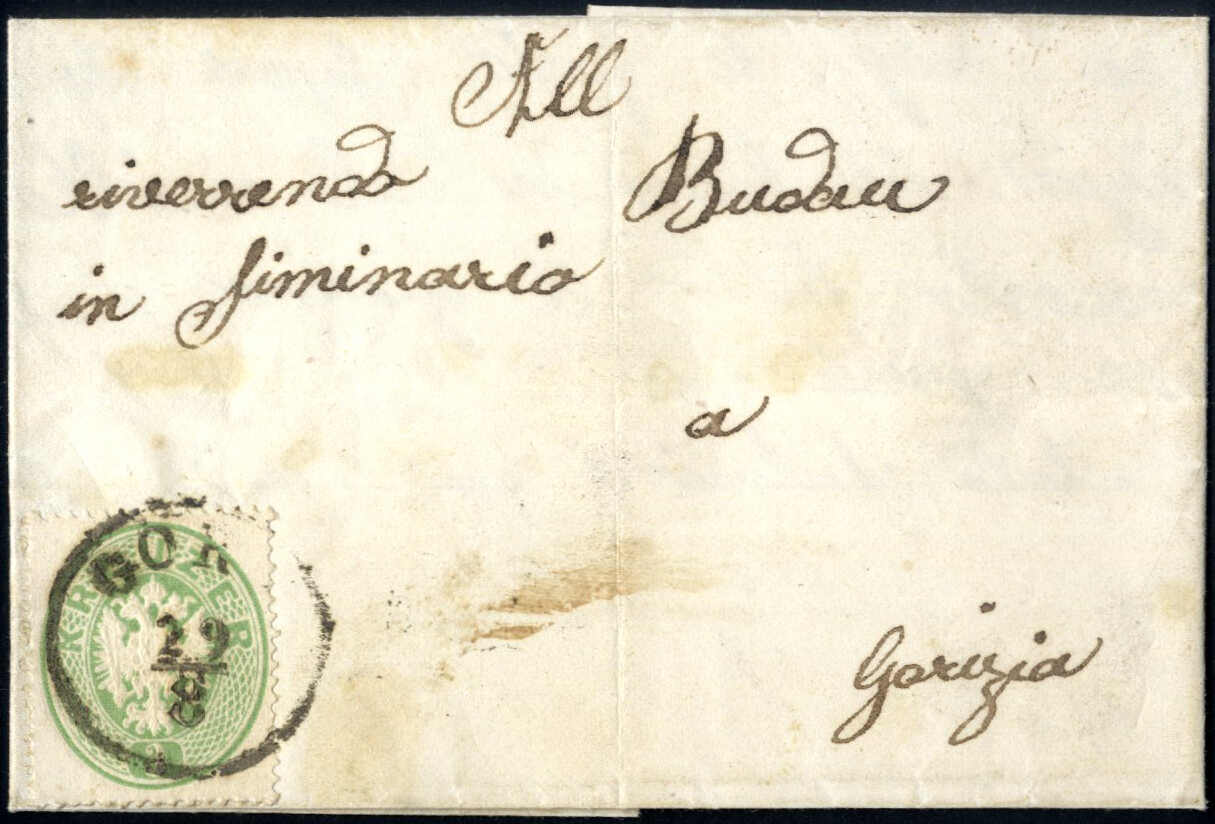 All
riverrendo Budau
in Siminario
a
Gorizia
KREUZER
3
GÖR
29
8